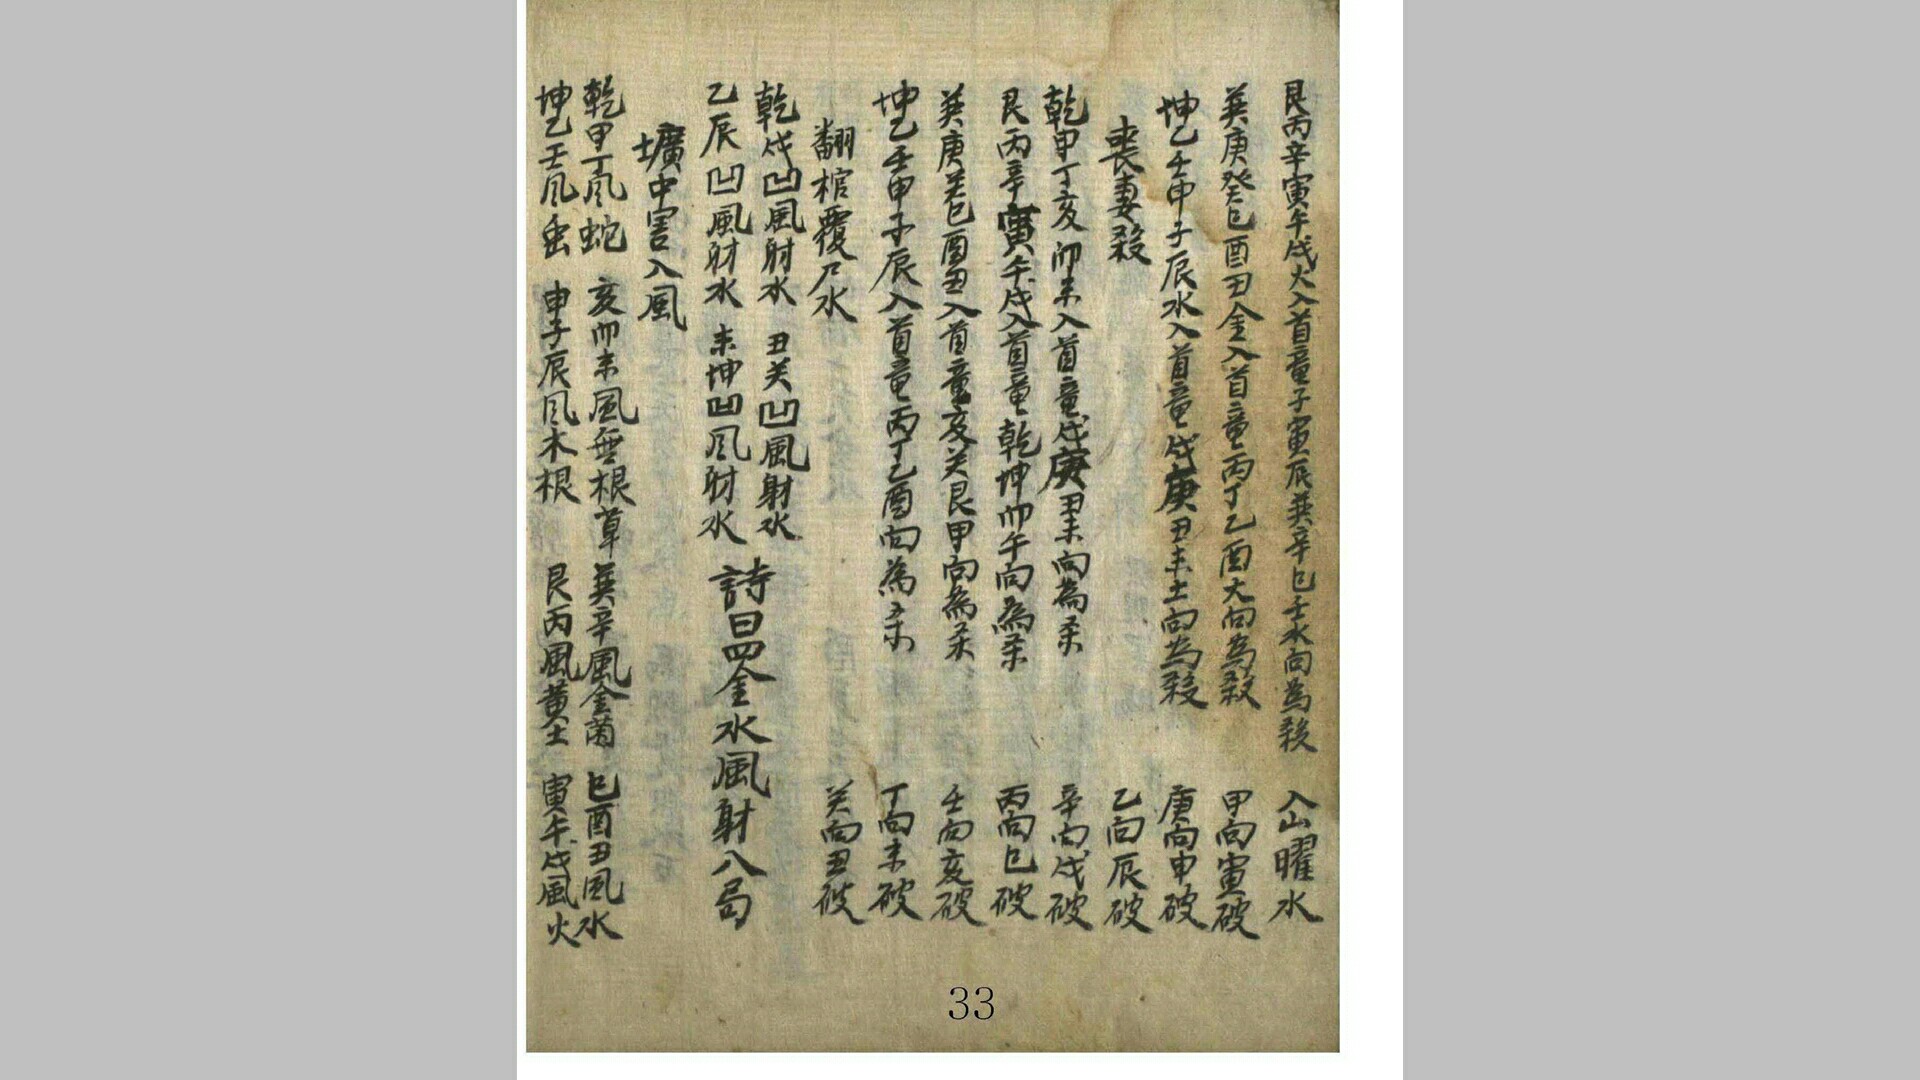 艮丙辛寅午戌火入首童子寅辰巽辛巳壬水向為殺 入山曜水
巽庚癸巳酉丑金入首童丙丁乙酉火向為殺 甲向寅破
坤乙壬申子辰水入首童戌庚丑未土向為殺 庚向申破
喪妻殺 乙向辰破
乾甲丁亥卯未入首童戌庚丑未向為杀 辛向戌破
艮丙辛寅午戌入首童乾坤卯午向為杀 丙向巳破
巽庚癸巳酉丑入首童亥癸艮甲向為杀 壬向亥破
坤乙壬申子辰入首童丙丁乙酉向為杀 丁向未破
翻棺覆尸水 癸向丑破
乾戌凹風射水 丑癸凹風射水
乙辰凹風射水 未坤凹风射水 詩曰四金水風射八局
壙中害入風
乾甲丁风蛇 亥卯未風無根草 巽辛風金菌 巳酉丑风水
坤乙壬风虫 申子辰风木根 艮丙風黄土 寅午戌風火
33